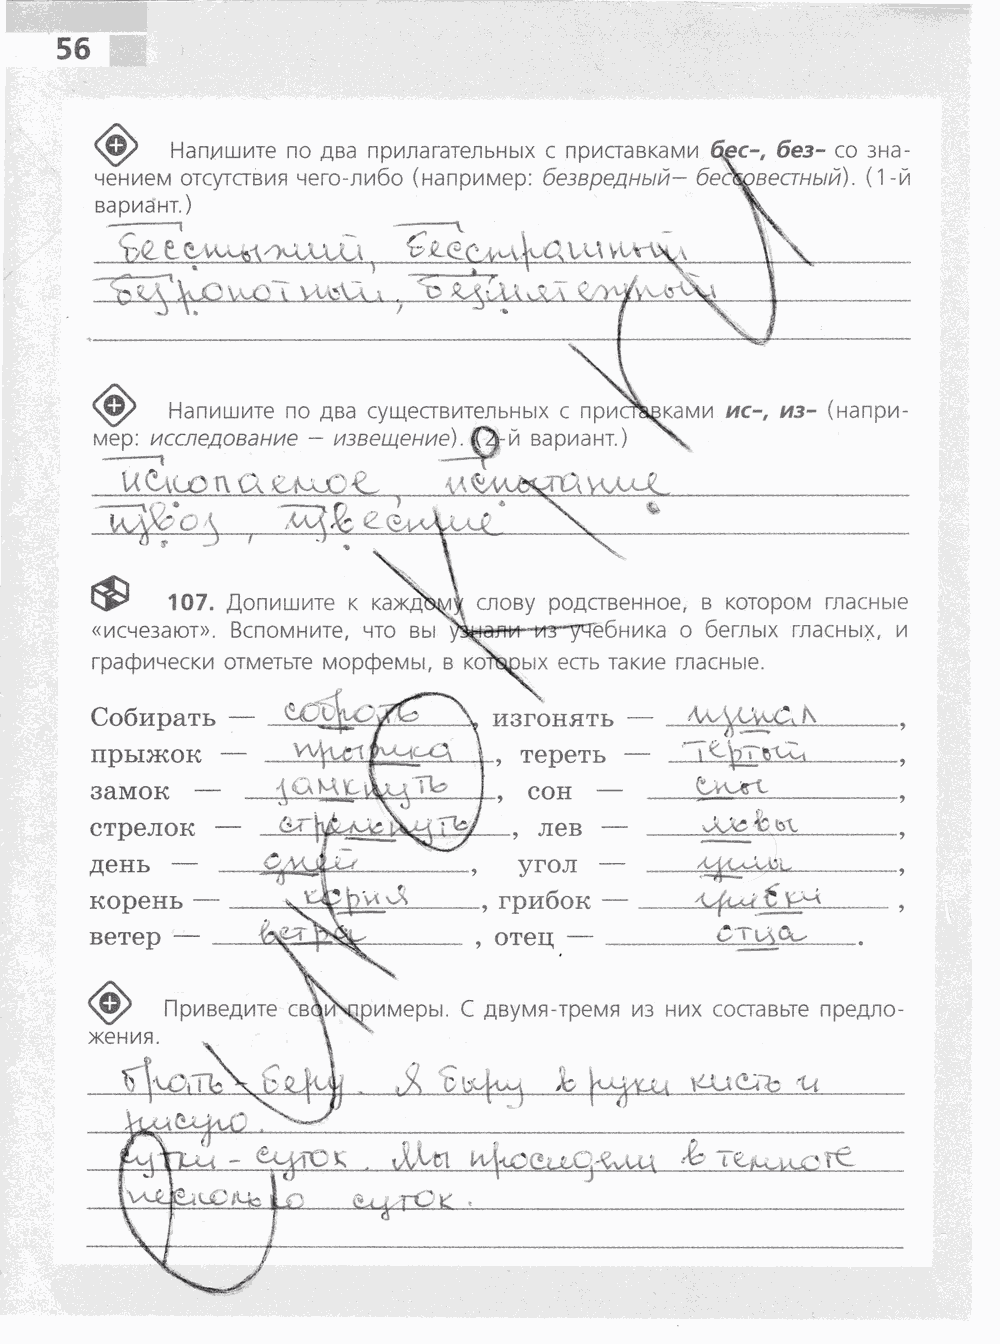 56
Напишите по два прилагательных с приставками бес-, без- со зна-
чением отсутствия чего-либо (например: безвредный— бессовестный). (1-й
вариант.)
бесстыжий, бесстрашный
безропотный, безмятежный
Напишите по два существительных с приставками ис-, из- (напри-
мер: исследование — извещение). (2-й вариант.)
ископаемое, испытание
извоз, известие
107. Допишите к каждому слову родственное, в котором гласные
«исчезают». Вспомните, что вы узнали из учебника о беглых гласных, и
графически отметьте морфемы, в которых есть такие гласные.
Собирать — собрать, изгонять — изгнал,
прыжок — прыжка, тереть — тёртый,
замок — замкнуть, сон — сны,
стрелок — стрельнуть, лев — львы,
день — дней, угол — углы,
корень — корня, грибок — грибки,
ветер — ветра, отец — отца.
Приведите свои примеры. С двумя-тремя из них составьте предло-
жения.
Брать - беру. Я беру в руки кисть и
рисую.
сутки - суток. Мы просидели в темноте
несколько суток.